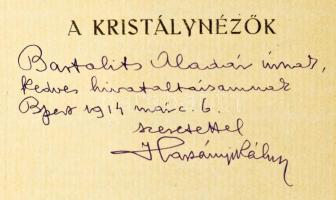 A KRISTÁLYNÉZŐK
Bartalits Aladár úrnak,
kedves hivataltársamnak
Bpest 1914 márc. 6.
szeretettel
Harsányi Kálmán